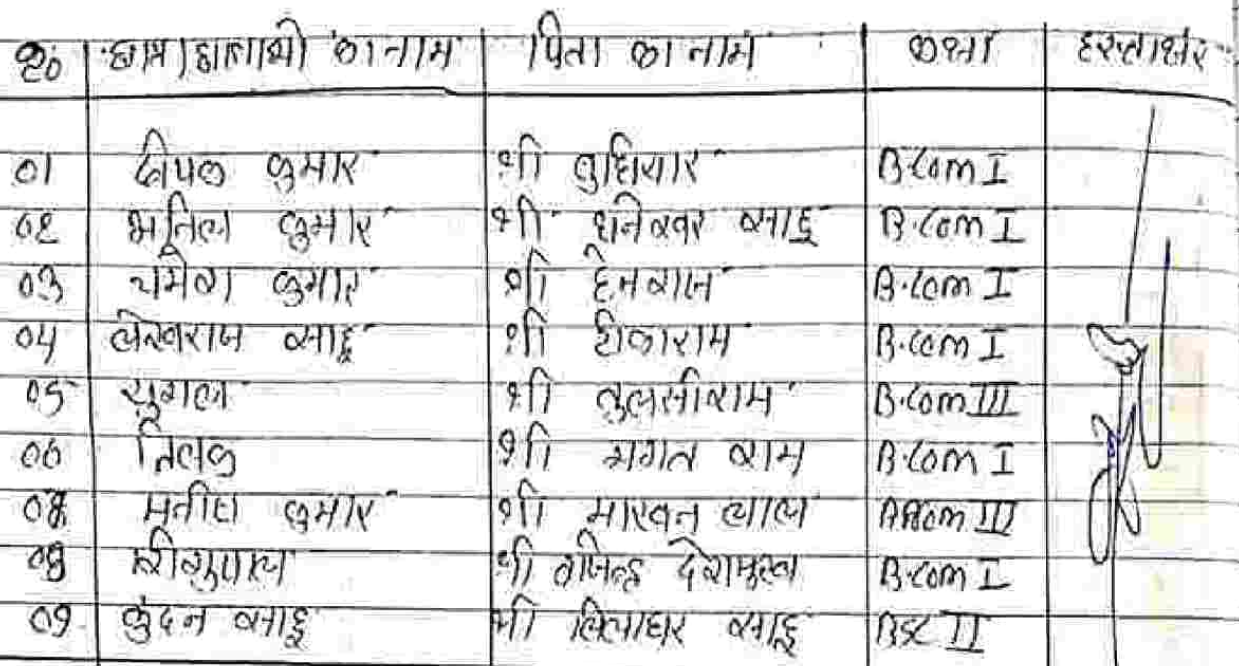 क्र० छात्र/छात्राओ का नाम पिता का नाम कक्षा हस्ताक्षर
01 दीपक कुमार श्री बुधियार B.Com I
02 अनिल कुमार श्री धनेश्वर साहू B.Com I
03 कुमार श्री B.Com I
04 लेखराम साहू श्री टीकाराम B.Com I
05 युगल श्री तुलसीराम B.Com III
06 तिलक श्री भगत राम B.Com I
मनीष कुमार श्री माखन लाल III
शिशुपाल श्री देशमुख B.Com I
09 कुंदन साहू श्री लिलाधर साहू BSC II